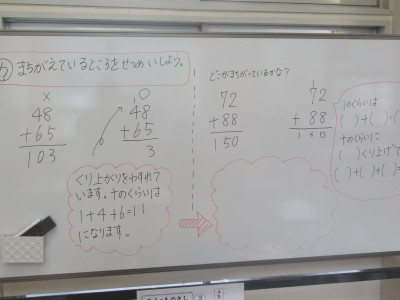 め まちがえているところをせつめいしよう。
×
48
+65
103
○
1
48
+65
3
くり上がりをわすれて
います。十のくらいは
1+4+6=11
になります。
どこがまちがっているかな?
72
+88
150
1
72
+88
160
1のくらいは
( )+( )=(
十のくらいに
( )くり上げて
( )+( )+( )=